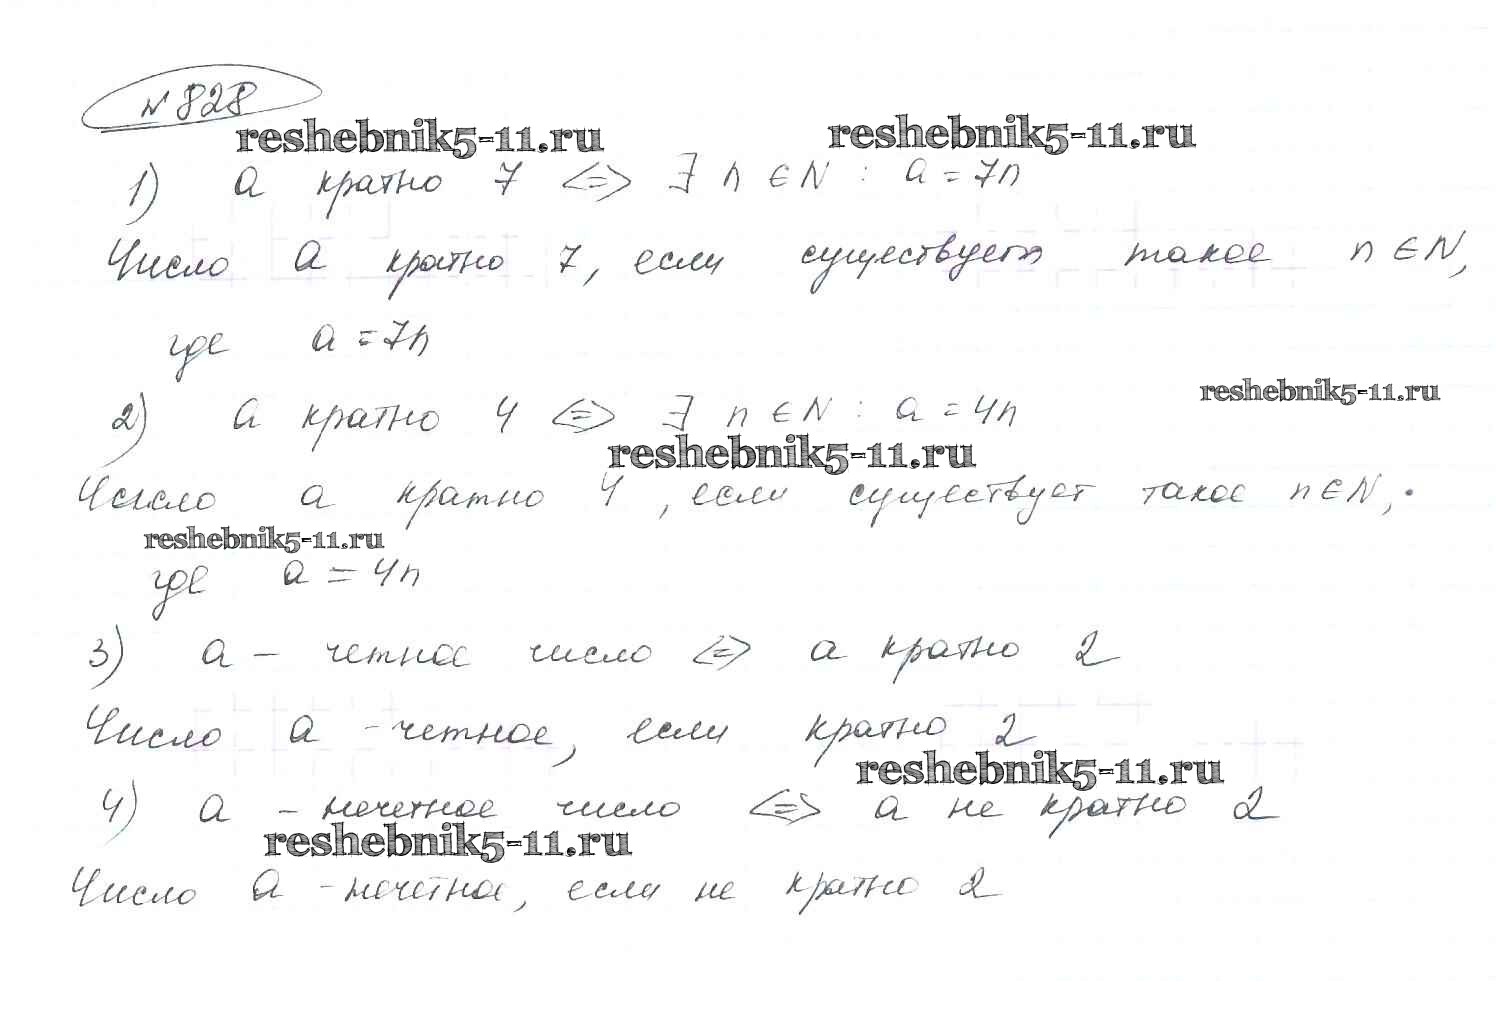 № 828
reshebnik5-11.ru reshebnik5-11.ru
1) a кратно 7 <=> ∃ n ∈ N : a = 7n
Число a кратно 7, если существует такое n ∈ N,
где a = 7n
reshebnik5-11.ru
2) a кратно 4 <=> ∃ n ∈ N : a = 4n
reshebnik5-11.ru
Число a кратно 4, если существует такое n ∈ N,
reshebnik5-11.ru
где a = 4n
3) a – четное число <=> a кратно 2
Число a - четное, если кратно 2
reshebnik5-11.ru
4) a - нечетное число <=> a не кратно 2
reshebnik5-11.ru
Число a - нечетное, если не кратно 2